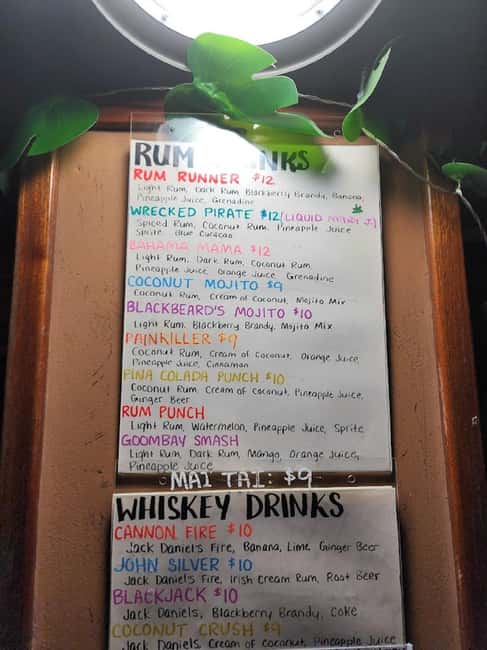 RUM DRINKS
RUM RUNNER $12
Light Rum, Dark Rum Blackberry Brandy, Banana,
Pineapple Juice, Grenadine
WRECKED PIRATE $12 (LIQUID MARY J.)
Spiced Rum, Coconut Rum, Pineapple Juice
Sprite, Blue Curacao
BAHAMA MAMA $12
Light Rum, Dark Rum, Coconut Rum
Pineapple Juice, Orange Juice, Grenadine
COCONUT MOJITO $9
Coconut Rum, Cream of Coconut, Mojito Mix
BLACKBEARD'S MOJITO $10
Light Rum, Blackberry Brandy, Mojito Mix
PAINKILLER $9
Coconut Rum, Cream of Coconut, Orange Juice,
Pineapple Juice, Cinnamon
PINA COLADA PUNCH $10
Coconut Rum, Cream of Coconut, Pineapple Juice,
Ginger Beer
RUM PUNCH
Light Rum, Watermelon, Pineapple Juice, Sprite
GOOMBAY SMASH
Light Rum, Dark Rum, Mango, Orange Juice,
Pineapple Juice
MAI TAI: $9
WHISKEY DRINKS
CANNON FIRE $10
Jack Daniel's Fire, Banana, Lime, Ginger Beer
JOHN SILVER $10
Jack Daniels Fire, Irish Cream Rum, Root Beer
BLACKJACK $10
Jack Daniels, Blackberry Brandy, Coke
COCONUT CRUSH $9
Jack Daniels, Cream of Coconut, Pineapple Juice